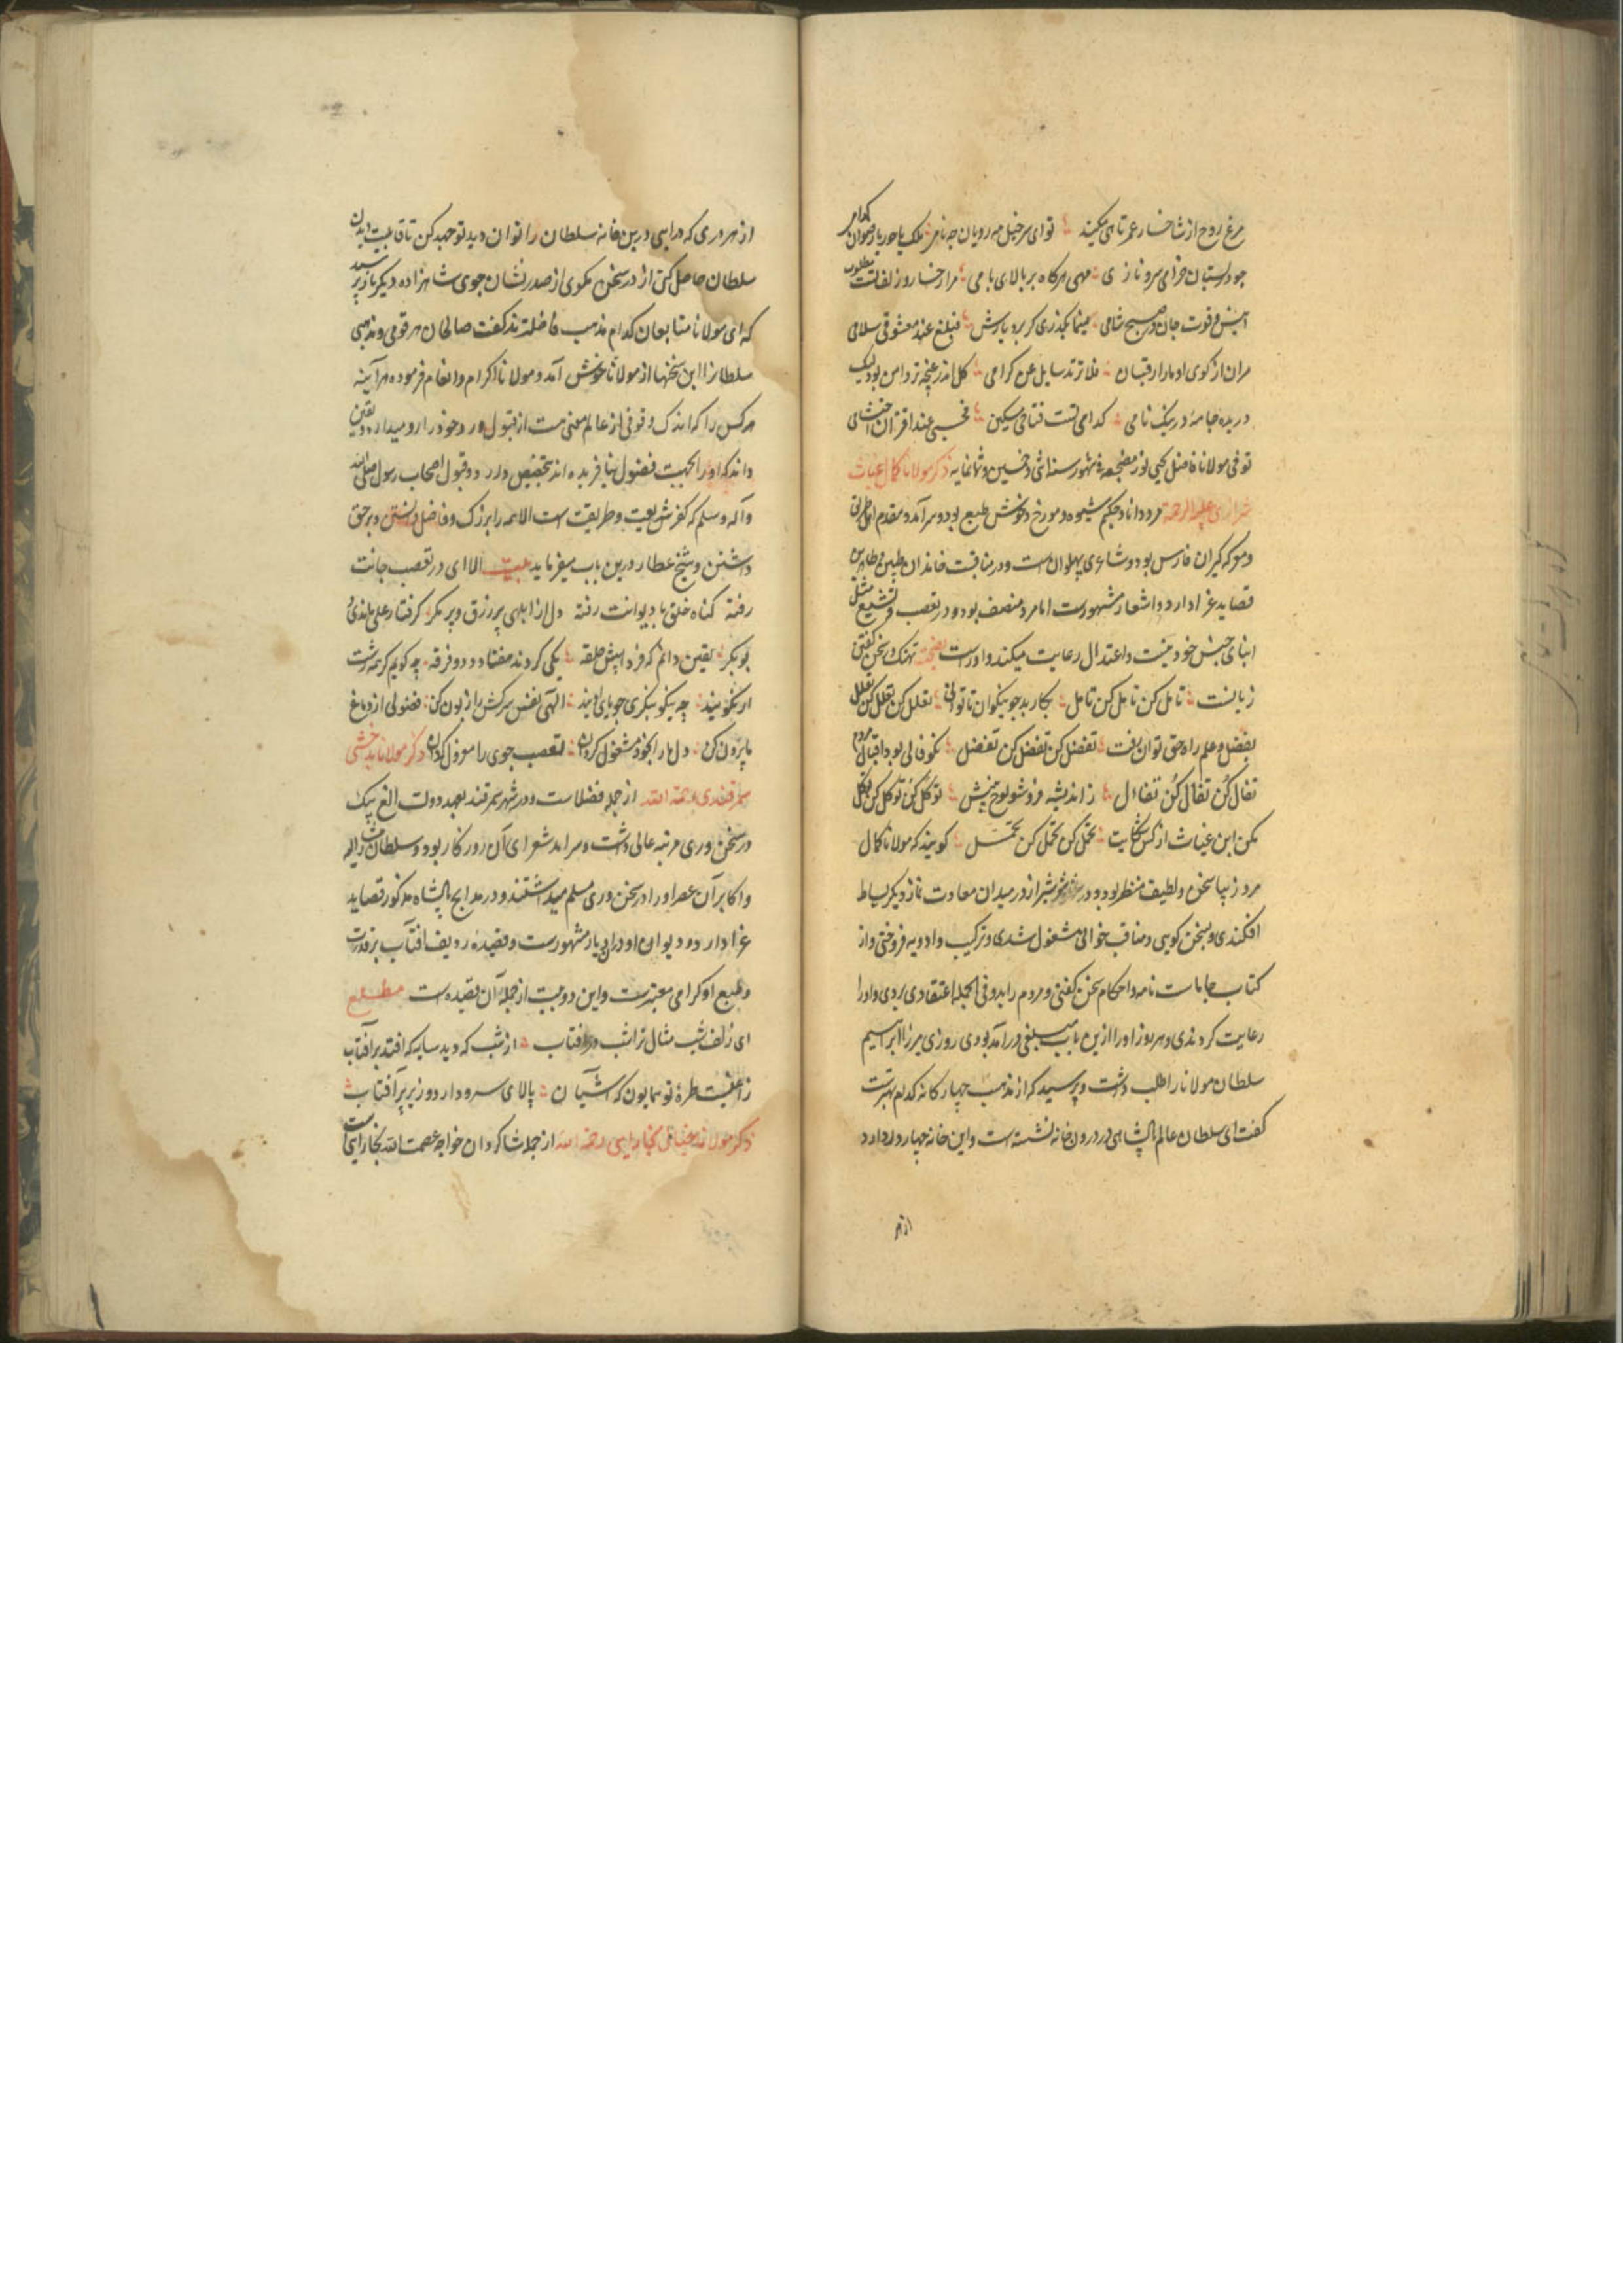 مرغ روح از شاخسار عمر تا می‌کیند تو ای سرخیل مه رویان چه نامی ملک یا حور یا رضوان کدامی
چو در بستان خرامی سرو نازی مهی هر گاه بر بالای بامی مرا رخسار و زلفت مطلوب
انیس و قوت جان در صبح و شامی بگذری کر بر دیارش فبلغ عند معشوقی سلامی
مران از کوی او ما را رقیبان فلا ترتد سایل عن کرامی کل اندر غنچه تر دامن بود لیک
دریده جامه در نیک نامی کدامی تست فتاحی مسکین
توفی مولانا فاضل یحیی نور مضجعه فی شهور سنه اثنی و خمسین و ثمانمایه ذکر مولانا کمال غیاث
شیرازی علیه الرحمه مرد دانا و حکیم شیوه و مورخ و خوش طبع بود و سرآمد و مقدم اهل طریق
و معرکه گیران فارس بود و شاعری پهلوان است و در مناقبت خاندان طیبین و طاهرین
قصاید غرا دارد و اشعار مشهورست اما مرد منصف بود و در تعصب و تشیع مثل
ابنای جنس خود نیست و اعتدال رعایت میکند و اوراست سخن گفتن
زبانست تامل کن تامل کن تامل بکار بد چو نیکوان تا توانی تعلل کن تعلل کن تعلل
بفضل و علم راه حق توان یافت تفضل کن تفضل کن تفضل نکو فالی بود اقبال مردم
تفال کن تفال کن تفال ز اندیشه فرو شو لوح بینش توکل کن توکل کن توکل
مکن ابن غیاث از کس شکایت تحمل کن تحمل کن تحمل گویند که مولانا کمال
مرد زیبا سخن و لطیف منظر بود و در شهر شیراز در میدان سعادت نماز دیگر بساط
افکندی و بسخن گویی و مناقب خوانی مشغول شدی و ترکیب و ادویه فروختی و از
کتاب جاماسب نامه و احکام سخن گفتی و مردم را بدو فی الجمله اعتقادی بودی و او را
رعایت کردندی و هر روز او را ازین باب مبلغی درآمد بودی روزی میرزا ابراهیم
سلطان مولانا را طلب داشت و پرسید که از مذهب چهارگانه کدام بهترست
گفت ای سلطان عالم پادشاهی در درون خانه نشسته است و این خانه چهار در دارد
از هر
از هر دری که در آیی درین خانه سلطان را توان دید تو جهد کن تا قابلیت دیدن
سلطان حاصل کنی از در سخن مگوی از صدر نشان جوی شاهزاده دیگر باز پرسید
که ای مولانا متابعان کدام مذهب فاضلترند گفت صالحان هر قومی و مذهبی
سلطانرا این سخنها از مولانا خوش آمد و مولانا را اکرام و انعام فرمود هر آینه
هر کس را که اندک وقوفی از عالم معنی هست از قبول و رد خود را دور میدارد و یقین
داند که او را بجهت فضول نیافریده اند تخصیص در رد و قبول اصحاب رسول صلی الله
و آله و سلم که کفر شریعت و طریقت است الا همه را بزرک و فاضل دانستن و بر حق
داشتن و شیخ عطار درین باب میفرماید بیت الا ای در تعصب جانت
رفته گناه خلق با دیوانت رفته دل از ابلهی پر زرق و پر مکر گرفتار علی ماندی و
بوبکر یقین دانم که فردا پیش حلقه یکی گردند هفتاد و دو فرقه چه گویم گر همه زشت
ار نکویند چو نیکو بنگری جویای اویند الهی نفس سرکش را زبون کن فضولی از دماغ
ما برون کن دل ما را بخود مشغول گردان تعصب جوی را معزول گردان ذکر مولانا بدخشی
سمرقندی رحمة الله از جمله فضلاست و در شهر سمرقند بعهد دولت الغ بیک
در سخن وری مرتبه عالی داشت و سرآمد شعرای آن روزگار بود و سلطان مشارالیه
و اکابر آن عصر او را در سخن وری مسلم میداشتند و در مدایح پادشاه مذکور قصاید
غرا دارد و دیوان او در آن دیار مشهورست و قصیده ردیف افتاب بر قدرت
و طبع او گرامی معتبرست و این دو بیت از جمله آن قصیده است مطلع
ای زلف شب مثال ترا شب در افتاب از شب که دید سایه که افتد بر آفتاب
زاغیست طره تو همایون که آشیان بالای سرو دارد و زیر پر آفتاب
ذکر مولانا خیالی بخارایی رحمة الله از جمله شاگردان خواجه عصمت الله بخارایی است